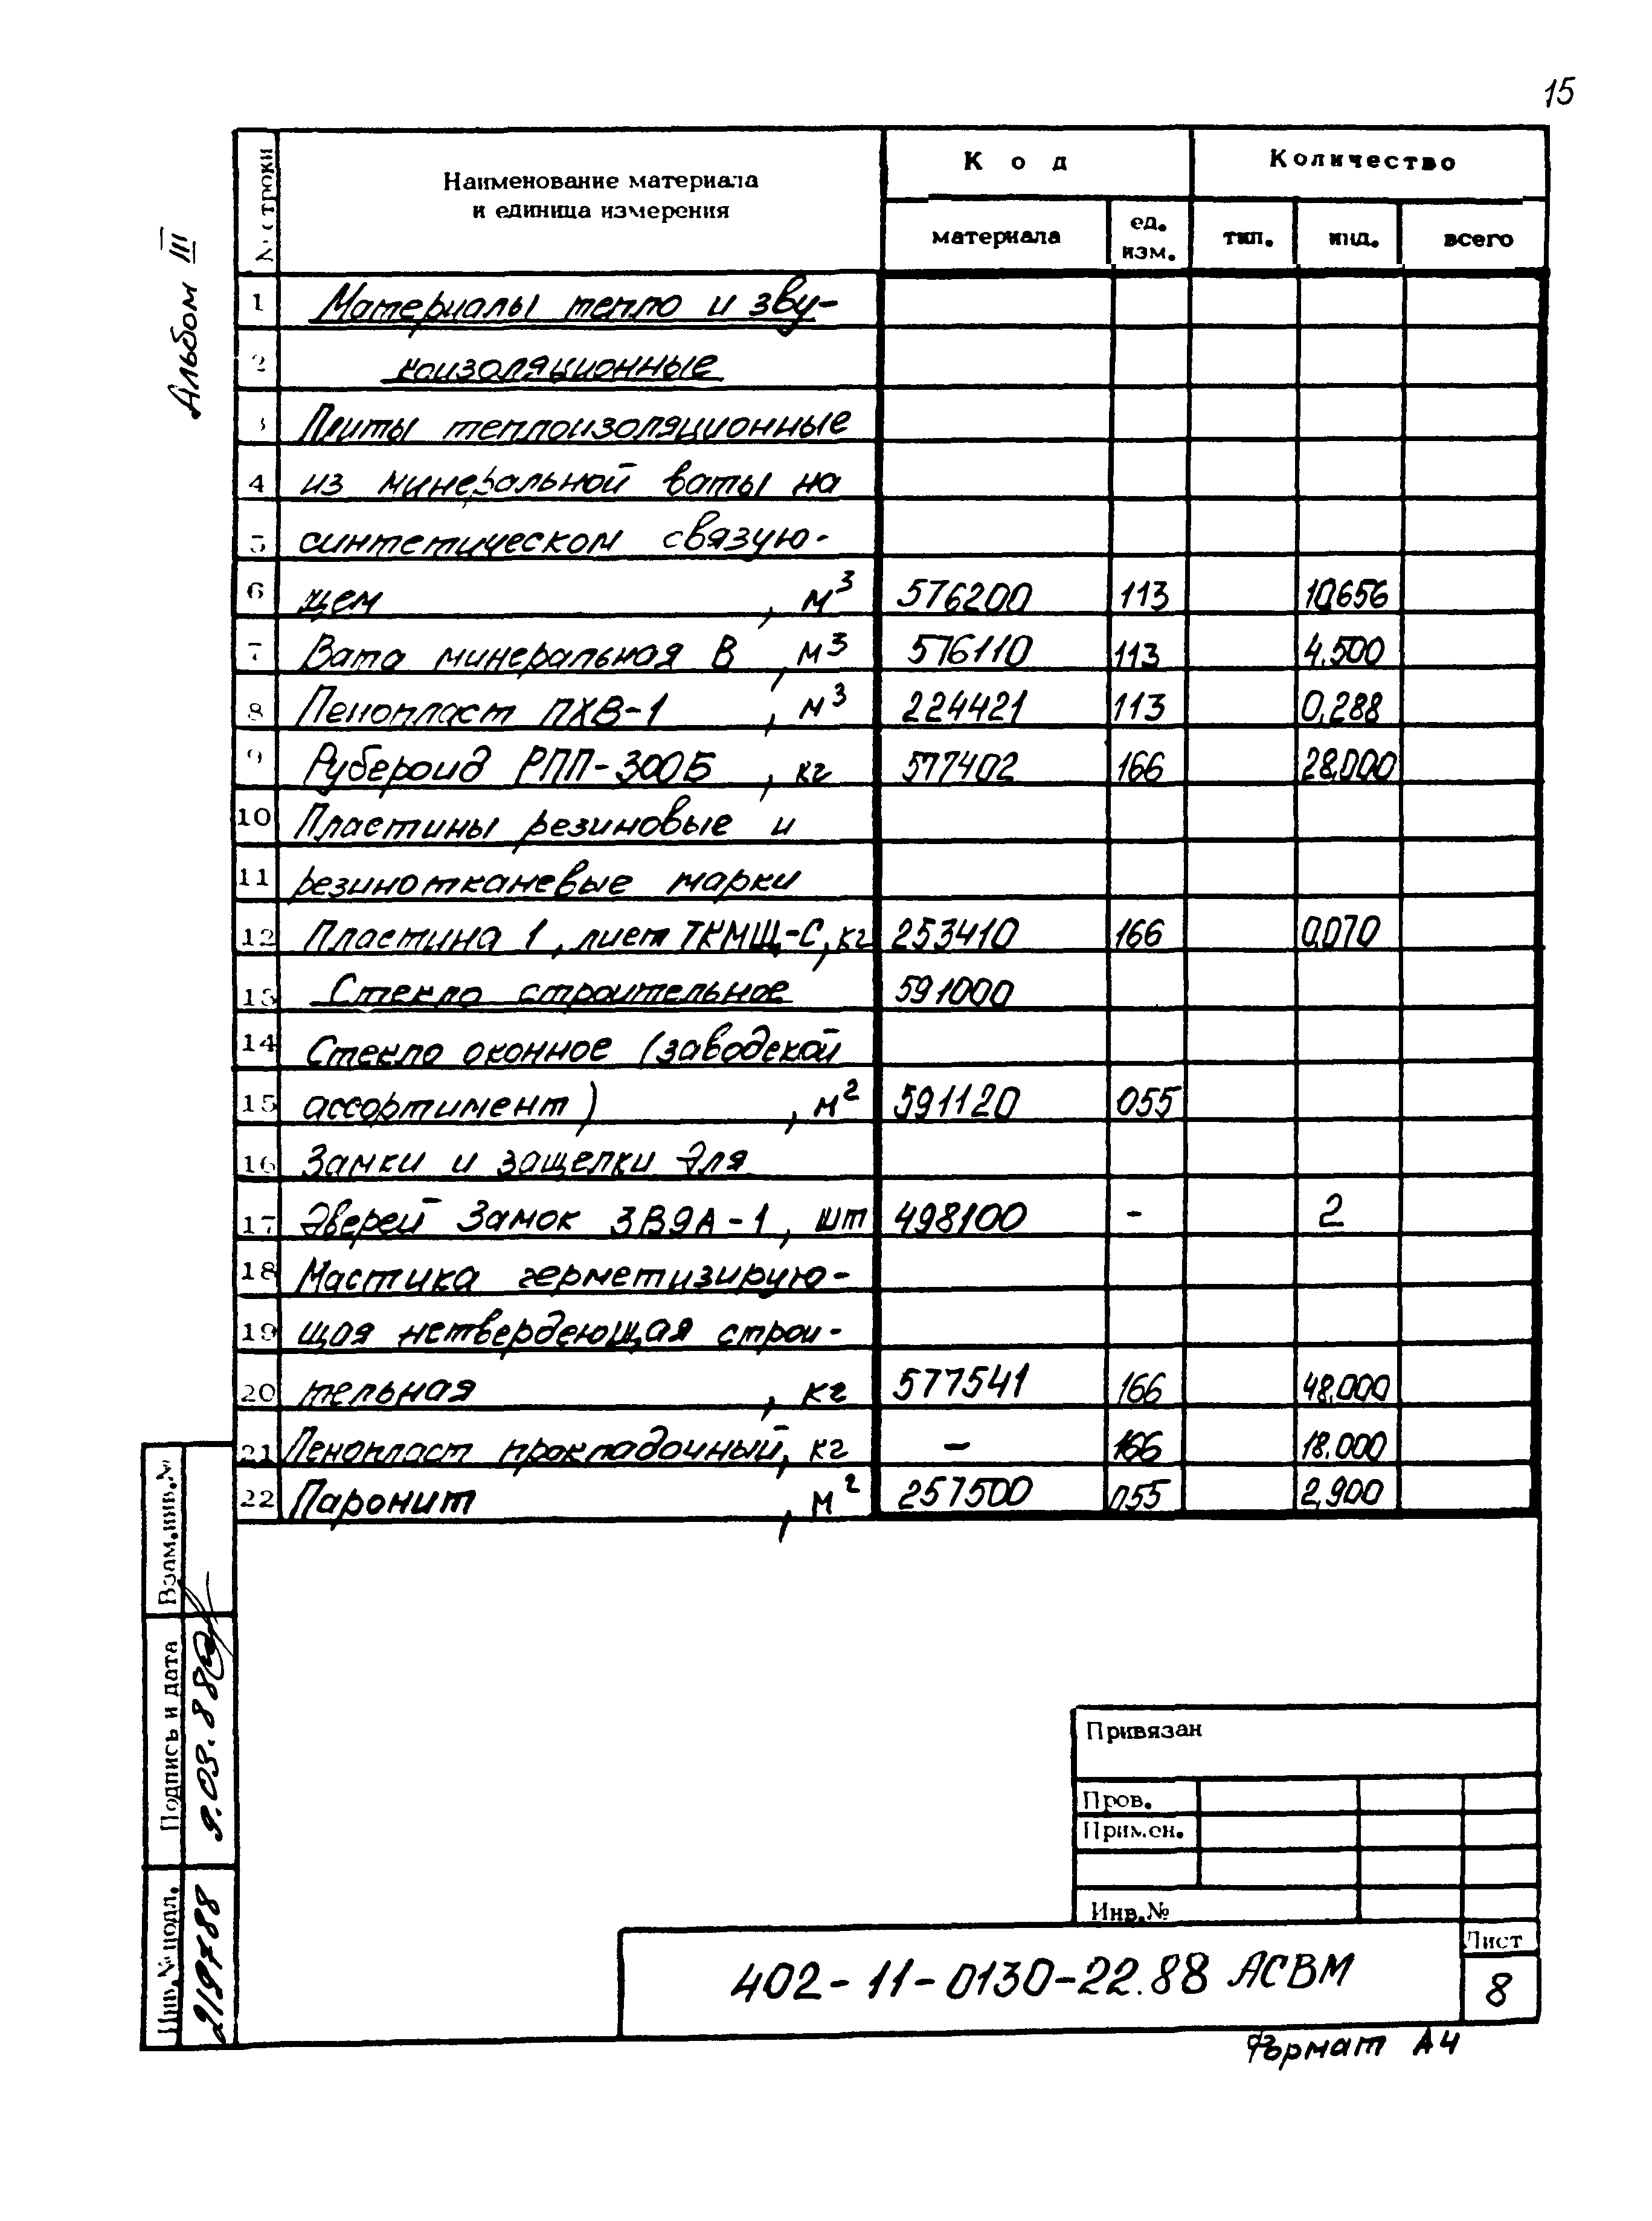 15
Альбом III
№ строки
Наименование материала
и единица измерения
Код
Количество
материала
ед.
изм.
тип.
инд.
всего
1 Материалы тепло и зву-
2 коизоляционные
3 Плиты теплоизоляционные
4 из минеральной ваты на
5 синтетическом связую-
6 щем , м³ 576200 113 10,656
7 Вата минеральная В , м³ 576110 113 4,500
8 Пенопласт ПХВ-1 , м³ 224421 113 0,288
9 Рубероид РПП-300Б , кг 577402 166 28,000
10 Пластины резиновые и
11 резинотканевые марки
12 Пластина 1, лист ТКМЩ-С, кг 253410 166 0,070
13 Стекло строительное 591000
14 Стекло оконное (заводской
15 ассортимент) , м² 591120 055
16 Замки и защелки для
17 дверей Замок ЗВ9А-1, шт 498100 - 2
18 Мастика герметизирую-
19 щая нетвердеющая строи-
20 тельная , кг 577541 166 48,000
21 Пенопласт прокладочный, кг - 166 18,000
22 Паронит , м² 257500 055 2,900
Взам.инв.№
Подпись и дата
9.03.88
Инв.№ подл.
Привязан
Пров.
Примен.
Инв.№
402-11-0130-22.88 АСВМ
Лист
8
Формат А4